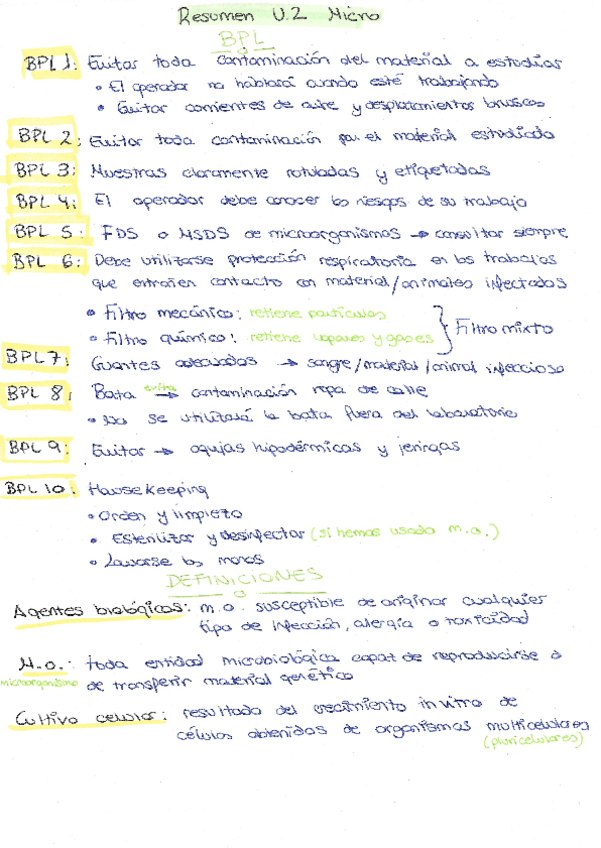 Resumen U.2 Micro
BPL
BPL 1: Evitar toda contaminación del material a estudiar
• El operador no hablará cuando esté trabajando
• Evitar corrientes de aire y desplazamientos bruscos
BPL 2: Evitar toda contaminación por el material estudiado
BPL 3: Muestras claramente rotuladas y etiquetadas
BPL 4: El operador debe conocer los riesgos de su trabajo
BPL 5: FDS o MSDS de microorganismos → consultar siempre
BPL 6: Debe utilizarse protección respiratoria en los trabajos
que entrañen contacto con material/animales infectados
• Filtro mecánico: retiene partículas
• Filtro químico: retiene vapores y gases } Filtro mixto
BPL 7: Guantes adecuados → sangre/material/animal infeccioso
BPL 8: Bata evita → contaminación ropa de calle
• No se utilizará la bata fuera del laboratorio
BPL 9: Evitar → agujas hipodérmicas y jeringas
BPL 10: Housekeeping
• Orden y limpieza
• Esterilizar y desinfectar (si hemos usado m.o.)
• Lavarse las manos
DEFINICIONES
Agentes biológicos: m.o. susceptible de originar cualquier
tipo de infección, alergia o toxicidad
M.o.: toda entidad microbiológica capaz de reproducirse o
microorganismo de transferir material genético
Cultivo celular: resultado del crecimiento in vitro de
células obtenidas de organismos multicelulares
(pluricelulares)